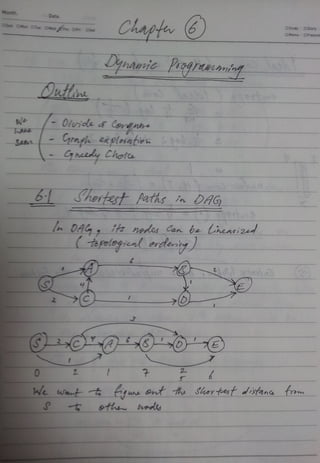 Month. Date.
Chapter 6
Dynamic Programming
Outline
We have seen
- Divide & Conquer
- Graph exploration
- Greedy Choice
6.1 Shortest Paths in DAG
In DAG, its nodes can be linearized
(topological ordering)
A 6 B
S 4 E
2 C 1 D 1
3
S 2 C 4 A 6 B 1 D 1 E
1
0 2 1 7 5 6
We want to figure out the shortest distance from
S to other nodes